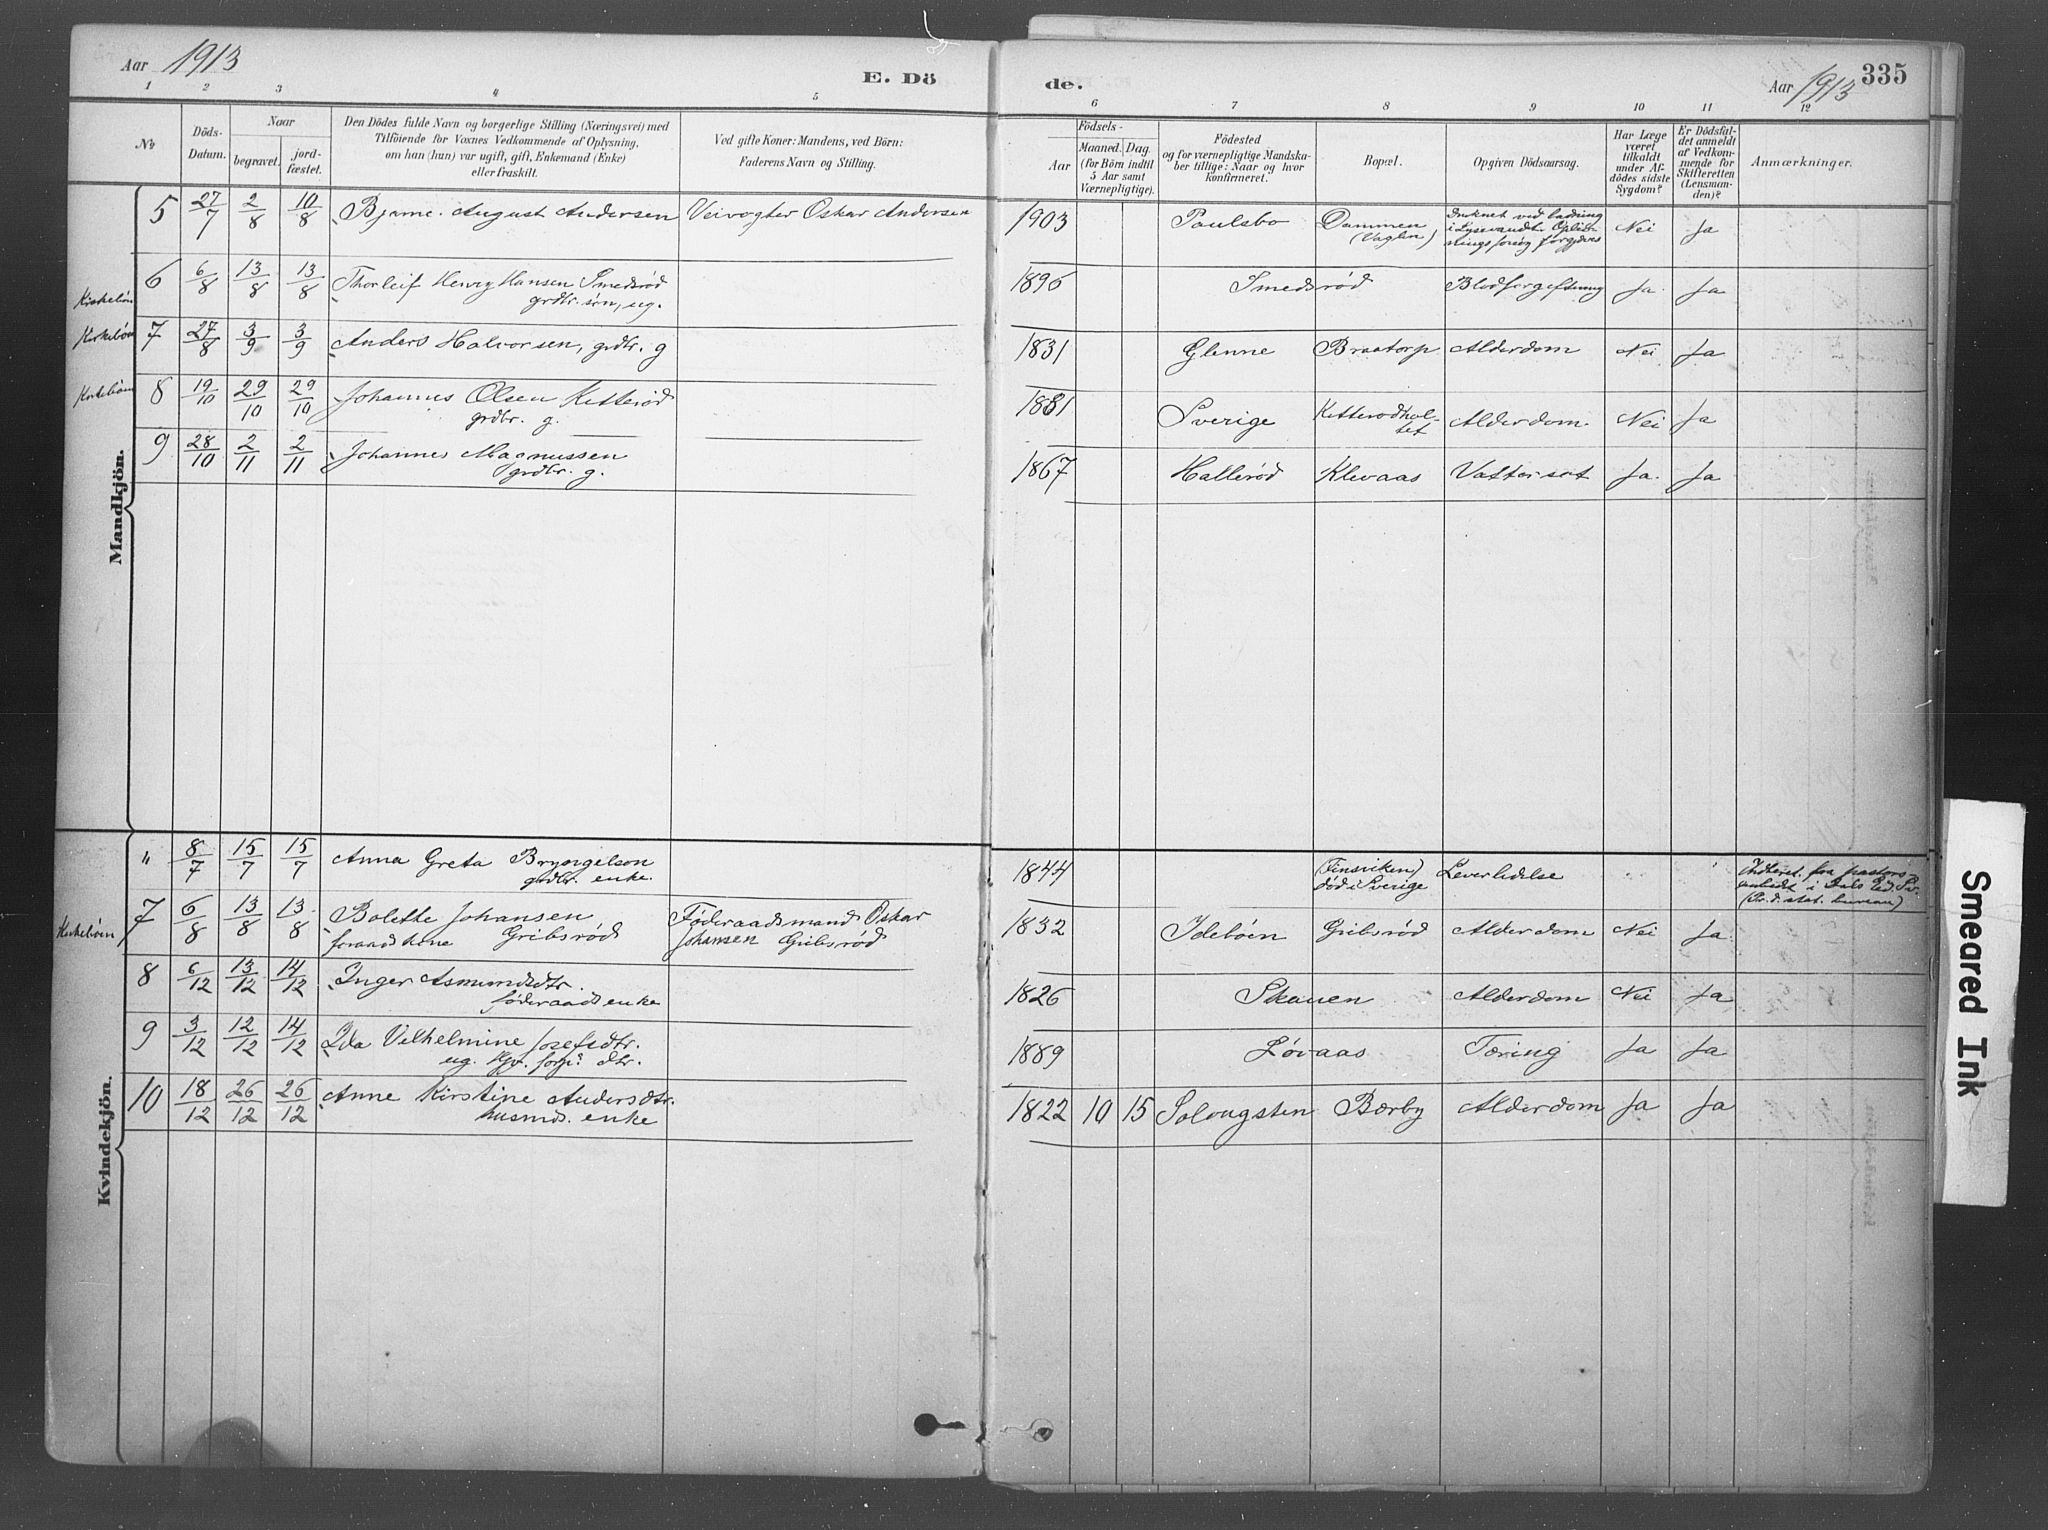 Aar 1913
E. Dö
de.
Aar 1913
335
1 2 3 4 5 6 7 8 9 10 11 12
No
Döds-
Datum.
Naar
begravet.
jord-
fæstet.
Den Dödes fulde Navn og borgerlige Stilling (Næringsvei) med
Tilföiende for Voxnes Vedkommende af Oplysning,
om han (hun) var ugift, gift, Enkemand (Enke)
eller fraskilt.
Ved gifte Koner: Mandens, ved Börn:
Faderens Navn og Stilling.
Födsels-
Aar
Maaned. Dag.
(for Börn indtil
5 Aar samt
Værnepligtige).
Födested
og for værnepligtige Mandska-
ber tillige: Naar og hvor
konfirmeret.
Bopæl.
Opgiven Dödsaarsag.
Har Læge
været
tilkaldt
under Af-
dödes sidste
Sygdom?
Er Dödsfal-
det anmeldt
af Vedkom-
mende for
Skifteretten
(Lensman-
den)?
Anmærkninger.
Mandkjön.
5 27/7 2/8 10/8 Bjarne August Andersen Veivogter Oskar Andersen 1903 Paulsbo Dammen Druknet ved badning Nei Ja
i Lysevandet. Opliv-
ningsforsøg forgjæves
Kirkebøn 6 6/8 13/8 13/8 Thorleif Henry Hansen Smedsrød 1896 Smedsrød Blodforgiftning Ja Ja
grdbr. søn, ug.
Kirkebøn 7 27/8 3/9 3/9 Anders Halvorsen, grdbr. g 1831 Glenne Braatorp Alderdom Nei Ja
Kirkebøn 8 19/10 29/10 29/10 Johannes Olsen Ketterød 1831 Sverige Ketterødhol- Alderdom. Nei Ja
grdbr. g. tet
9 28/10 2/11 2/11 Johannes Magnussen 1867 Hallerød Klevaas Vattersot Ja. Ja
grdbr. g.
Kvindekjön.
" 8/7 15/7 15/7 Anna Greta Bryngelson 1844 (Finsviken) Leverlidelse Indberet. fra pastors-
grdbr. enke. død i Sverige embedet i Dals Ed. Sv.
(P. d. stat. bureau)
Kirkebøn 7 6/8 13/8 13/8 Bolette Johansen Føderaadsmand Oskar 1832 Idebøen Gribsrød Alderdom Nei Ja
foraadskone Gribsrød Johansen Gribsrød
8 6/12 13/12 14/12 Inger Asmundsdtr. 1826 Skauen Alderdom Nei Ja
føderaads enke
9 3/12 12/12 14/12 Ida Vilhelmine Josefsdtr. 1889 Løvaas Tæring Ja Ja
ug. dtr.
10 18/12 26/12 26/12 Anne Kirstine Andersdtr. 1822 10 15 Solougsten Bærby Alderdom Ja Ja
husmds. enke
Smeared Ink